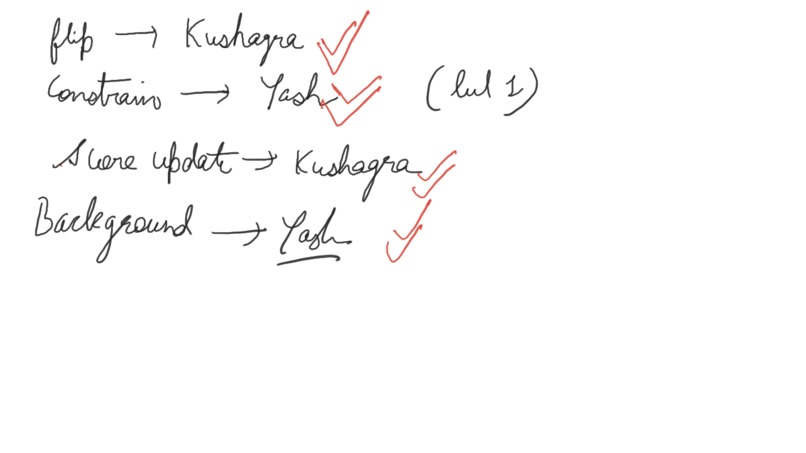 flip → Kushagra
Constrain → Yash (lvl 1)
Score update → Kushagra
Background → Yash